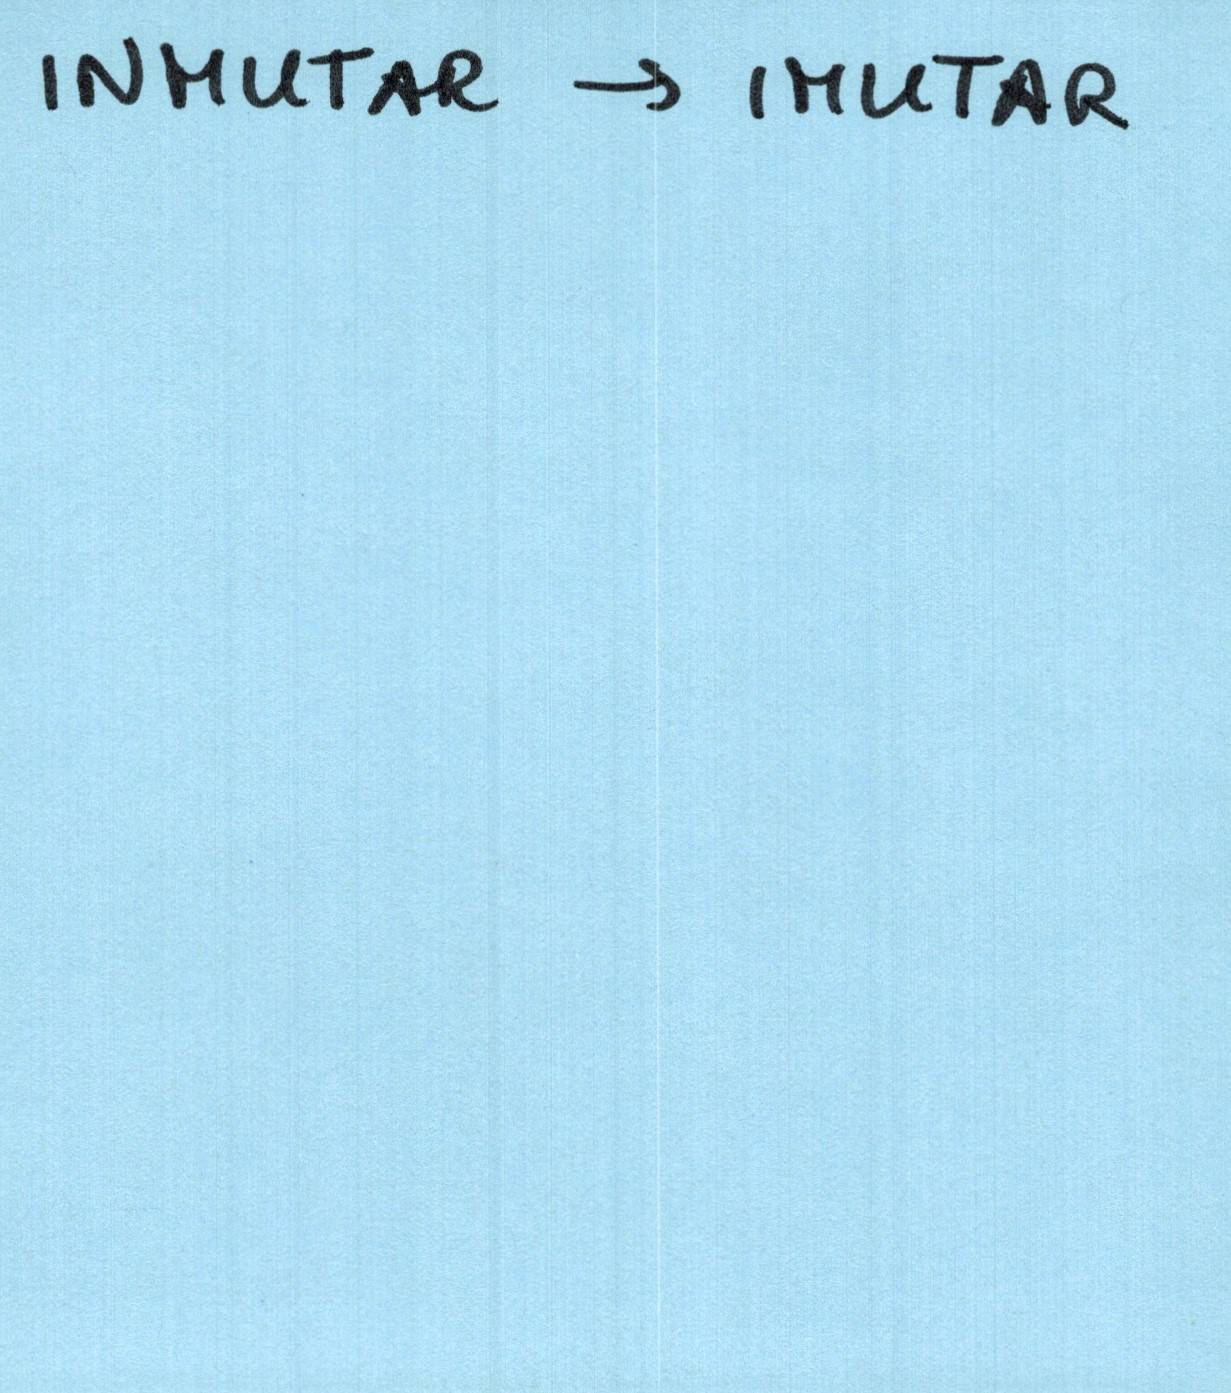 INMUTAR → IMUTAR